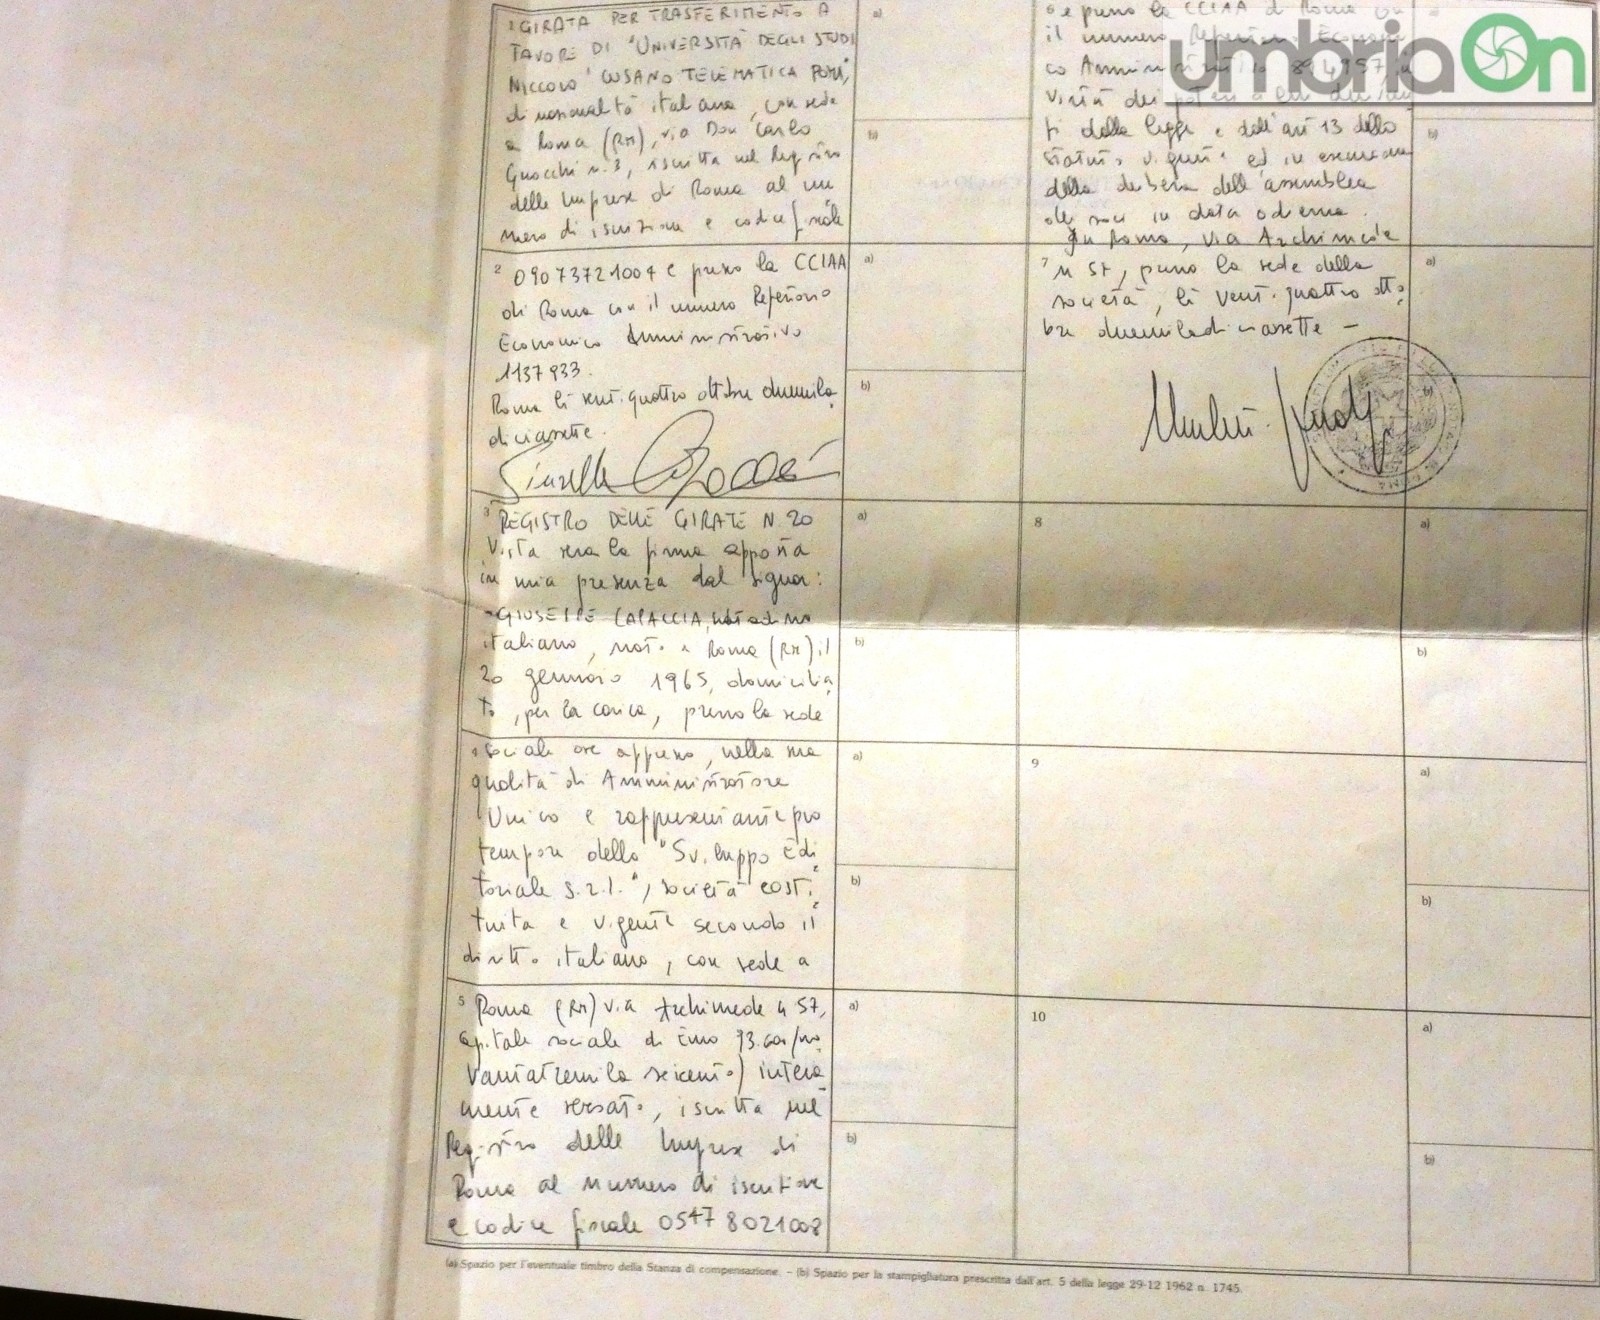 1 GIRATA PER TRASFERIMENTO A
FAVORE DI "UNIVERSITÀ DEGLI STUDI
NICCOLO' CUSANO TELEMATICA ROMA",
di nazionalità italiana, con sede
a Roma (RM), via Don Carlo
Gnocchi n. 3, iscritta nel Registro
delle Imprese di Roma al nu
mero di iscrizione e codice fiscale
2 09073721004 e presso la CCIAA
di Roma con il numero Repertorio
Economico Amministrativo
1137933.
Roma lì ventiquattro ottobre duemila
diciassette.
3 REGISTRO DELLE GIRATE N. 20
Vista vera la firma apposta
in mia presenza dal signor:
- GIUSEPPE CAPACCIA,
italiano, nato a Roma (RM) il
20 gennaio 1965, domicilia
to, per la carica, presso la sede
4 sociale ove appreso, nella sua
qualità di Amministratore
Unico e rappresentante pro
tempore della "Sviluppo Edi
toriale s.r.l.", società costi
tuita e vigente secondo il
diritto italiano, con sede a
5 Roma (RM) via Archimede n 57,
capitale sociale di Euro 93.600 (no
vantatremila seicento) intera
mente versato, iscritta nel
Registro delle Imprese di
Roma al numero di iscrizione
e codice fiscale 05478021008
6 e presso la CCIAA di Roma con
il numero Repertorio Economi
co Amministrativo 894957, in
virtù dei poteri a lui deriva
ti dalla legge e dall'art 13 dello
statuto vigente ed in esecuzione
della delibera dell'assemblea
dei soci in data odierna.
In Roma, via Archimede
7 n 57, presso la sede della
società, lì ventiquattro otto
bre duemiladiciassette -
8
9
10
a)
b)
a)
b)
a)
b)
a)
b)
a)
b)
a)
b)
a)
b)
a)
b)
a)
b)
a)
b)
(a) Spazio per l'eventuale timbro della Stanza di compensazione. – (b) Spazio per la stampigliatura prescritta dall'art. 5 della legge 29-12 1962 n. 1745.
umbriaOn